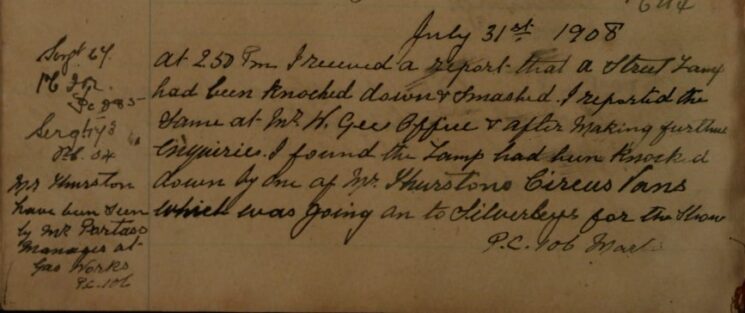 July 31st 1908
Sergt 64
Pc 285
Sergt 43
P.C. 04
Mr Thurston
have been seen
by Mr
Manager at
Gas Works
P.C. 106
at 2 50 Pm I received a report that a Street Lamp
had been Knocked down & Smashed. I reported the
Same at Mr H. Gees Office & after Making further
Enquiries. I found the Lamp had been Knocked
down by one of Mr. Thurstons Circus Vans
which was going on to Silverleys for the Show
P.C. 106